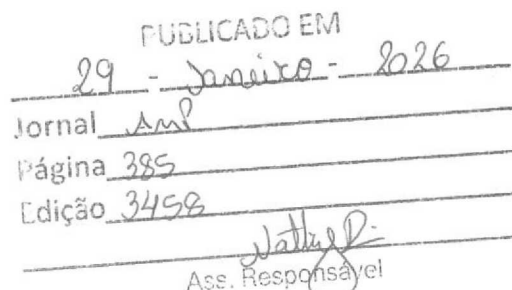 PUBLICADO EM
29 - Janeiro - 2026
Jornal AMP
Página 385
Edição 3458
Ass. Responsável